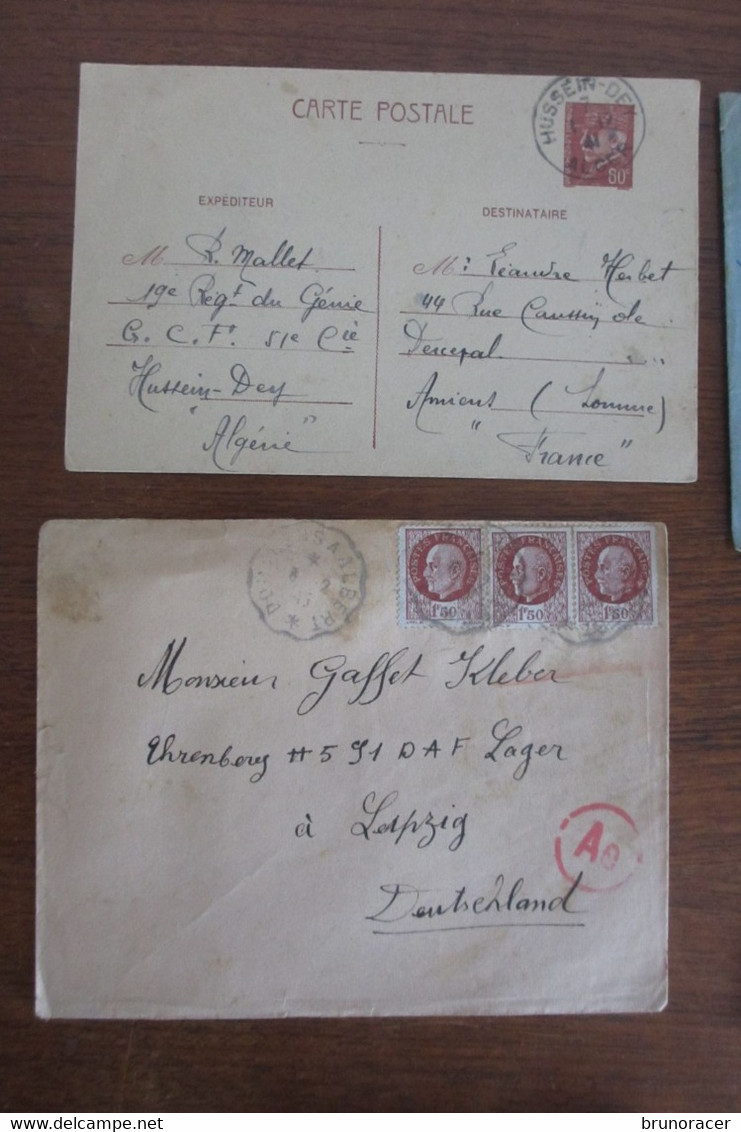 CARTE POSTALE
HUSSEIN-DEY
ALGER
80c
EXPÉDITEUR
M R. Mallet
19e Regt du Génie
G. C. Ft 51e Cie
Hussein-Dey
"Algérie"
DESTINATAIRE
Mr Léandre Herbet
44 Rue Caussin de
Perceval
Amiens (Somme)
"France"
ALBERT
POSTES FRANÇAISES
1F50
POSTES FRANÇAISES
1F50
POSTES FRANÇAISES
1F50
Monsieur Gaffet Kleber
Ehrenberg # 591 DAF Lager
à Leipzig
Deutschland
Ae
DELCAMPE.NET
brunoracer